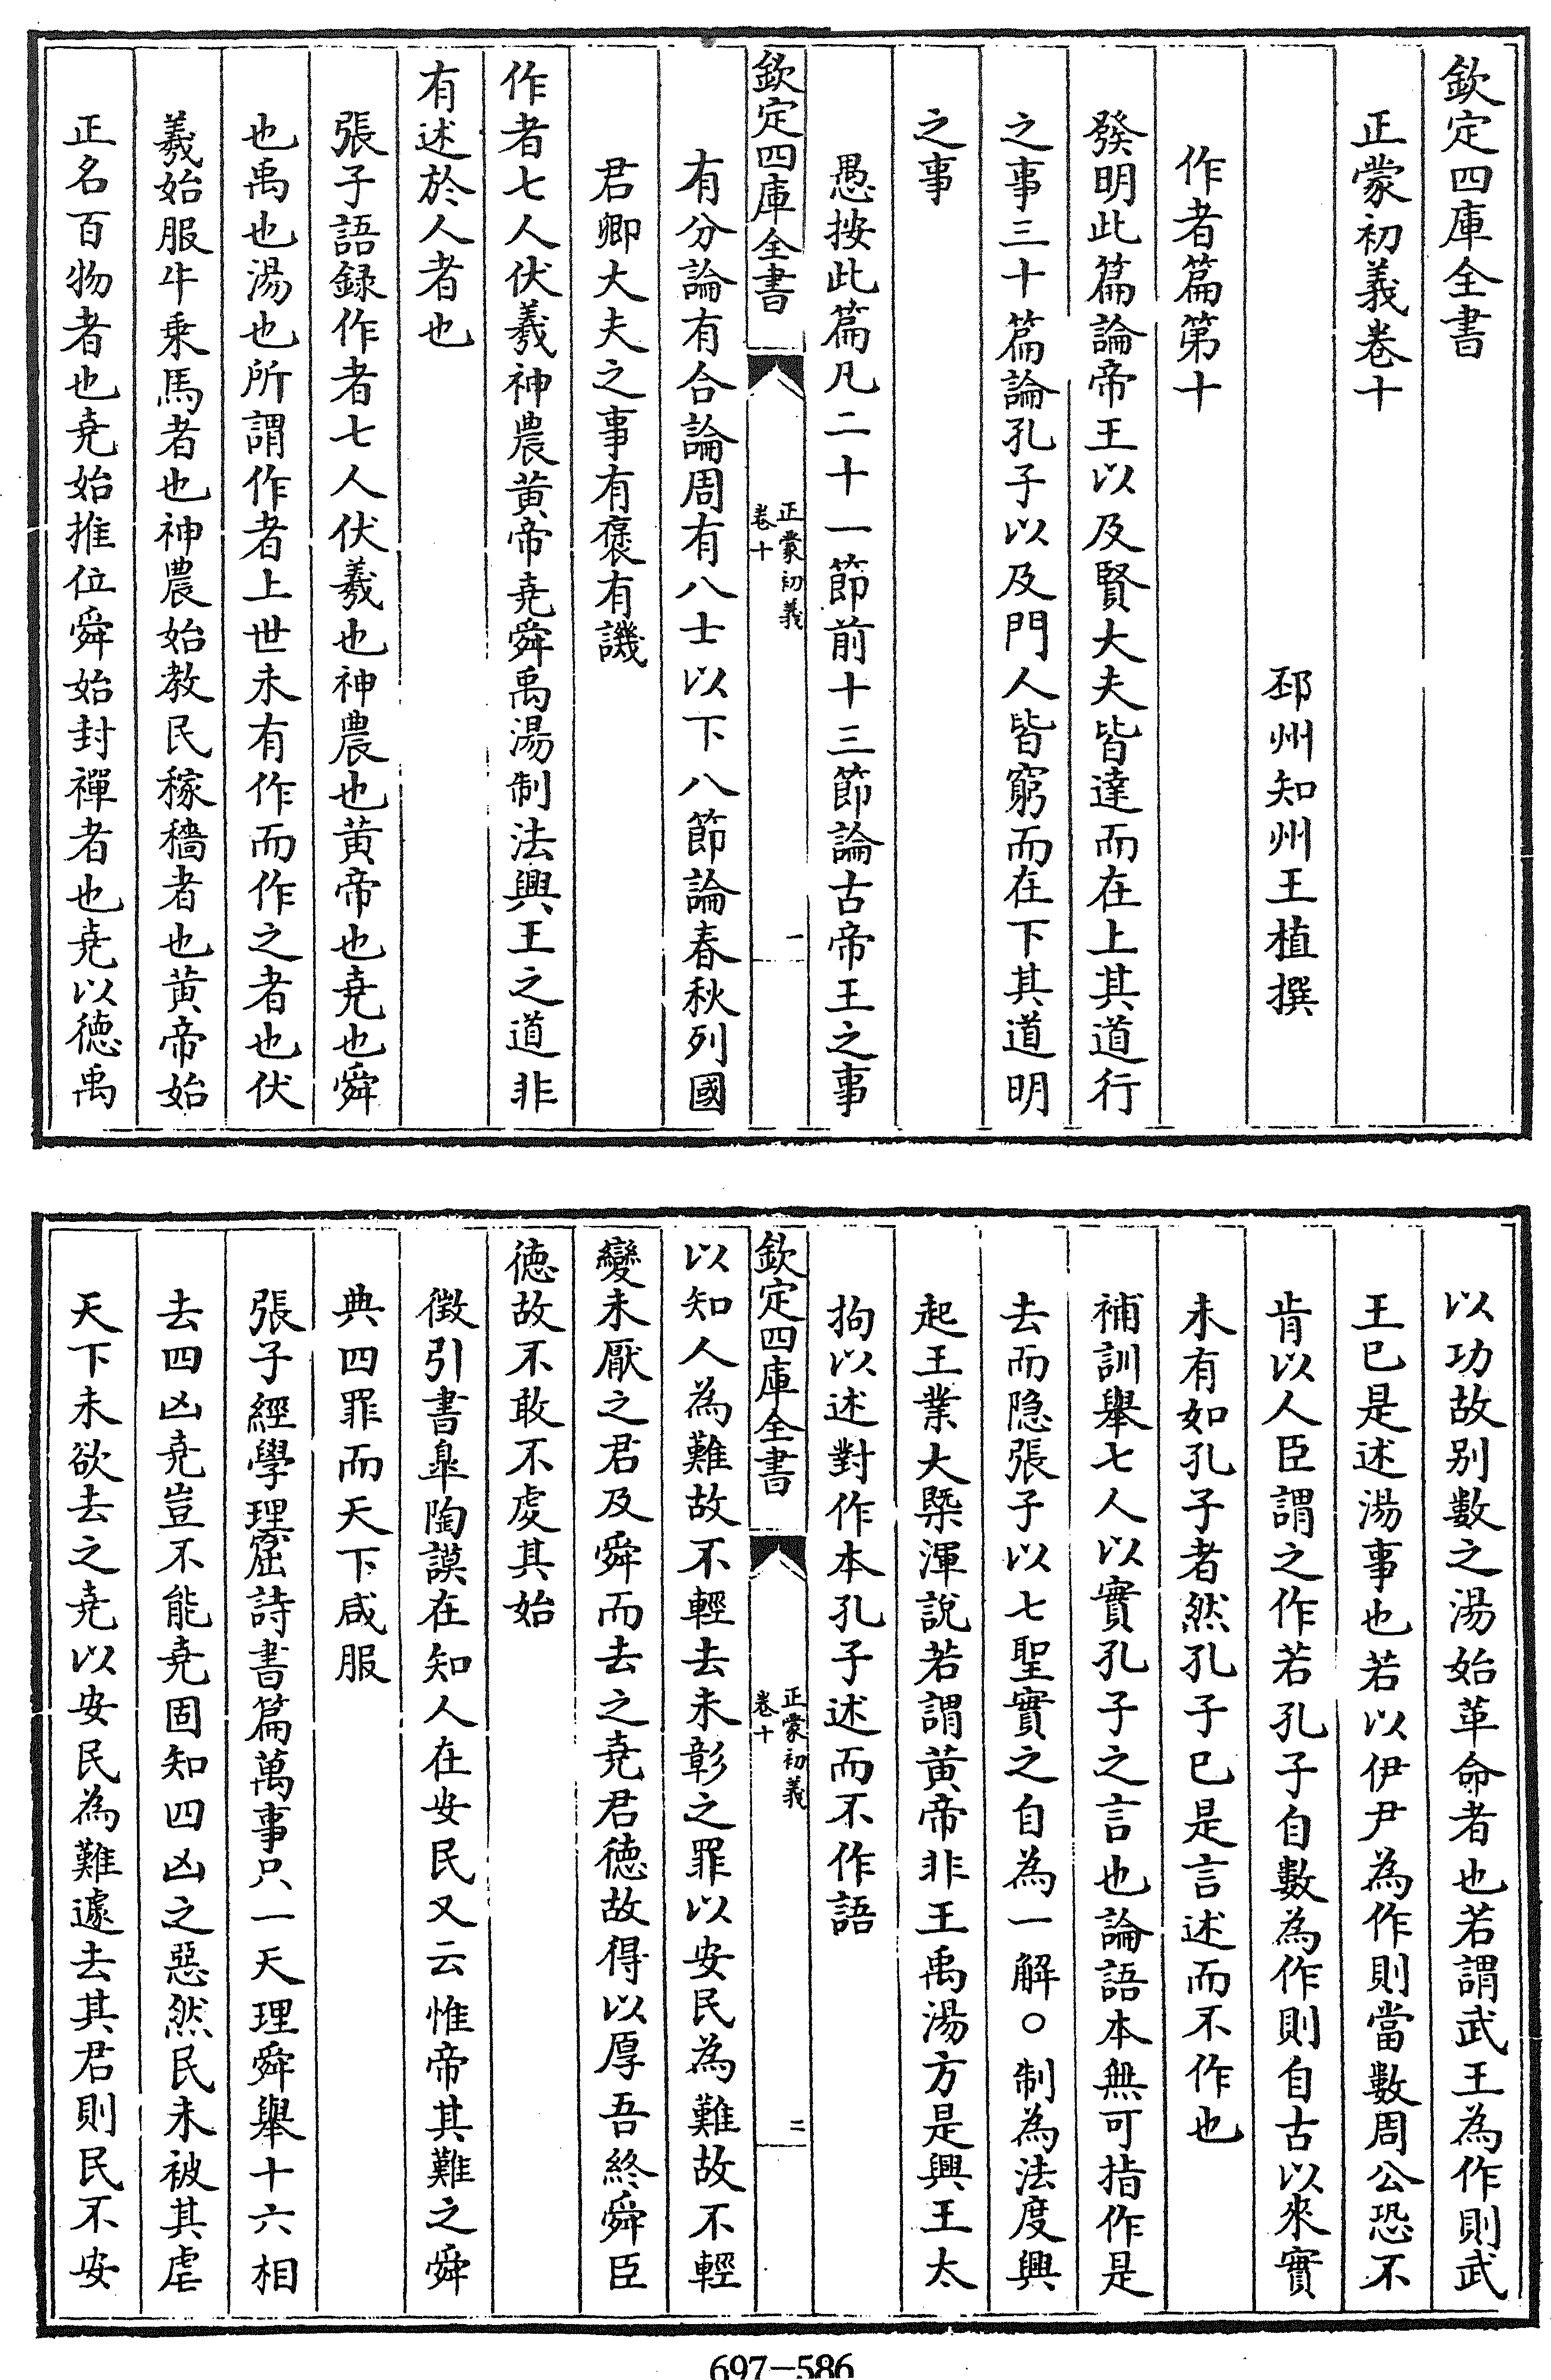 欽定四庫全書
正蒙初義卷十
邳州知州王植撰
作者篇第十
發明此篇論帝王以及賢大夫皆達而在上其道行
之事三十篇論孔子以及門人皆窮而在下其道明
之事
愚按此篇凡二十一節前十三節論古帝王之事
欽定四庫全書
正蒙初義
卷十
一
有分論有合論周有八士以下八節論春秋列國
君卿大夫之事有褒有譏
作者七人伏羲神農黄帝堯舜禹湯制法興王之道非
有述於人者也
張子語録作者七人伏羲也神農也黄帝也堯也舜
也禹也湯也所謂作者上世未有作而作之者也伏
羲始服牛乘馬者也神農始教民稼穡者也黄帝始
正名百物者也堯始推位舜始封禪者也堯以德禹
以功故别數之湯始革命者也若謂武王為作則武
王已是述湯事也若以伊尹為作則當數周公恐不
肯以人臣謂之作若孔子自數為作則自古以來實
未有如孔子者然孔子已是言述而不作也
補訓舉七人以實孔子之言也論語本無可指作是
去而隐張子以七聖實之自為一解○制為法度興
起王業大槩渾説若謂黄帝非王禹湯方是興王太
拘以述對作本孔子述而不作語
欽定四庫全書
正蒙初義
卷十
二
以知人為難故不輕去未彰之罪以安民為難故不輕
變未厭之君及舜而去之堯君德故得以厚吾終舜臣
德故不敢不虔其始
徴引書臯陶謨在知人在安民又云惟帝其難之舜
典四罪而天下咸服
張子經學理窟詩書篇萬事只一天理舜舉十六相
去四凶堯豈不能堯固知四凶之惡然民未被其虐
天下未欲去之堯以安民為難遽去其君則民不安
697-586